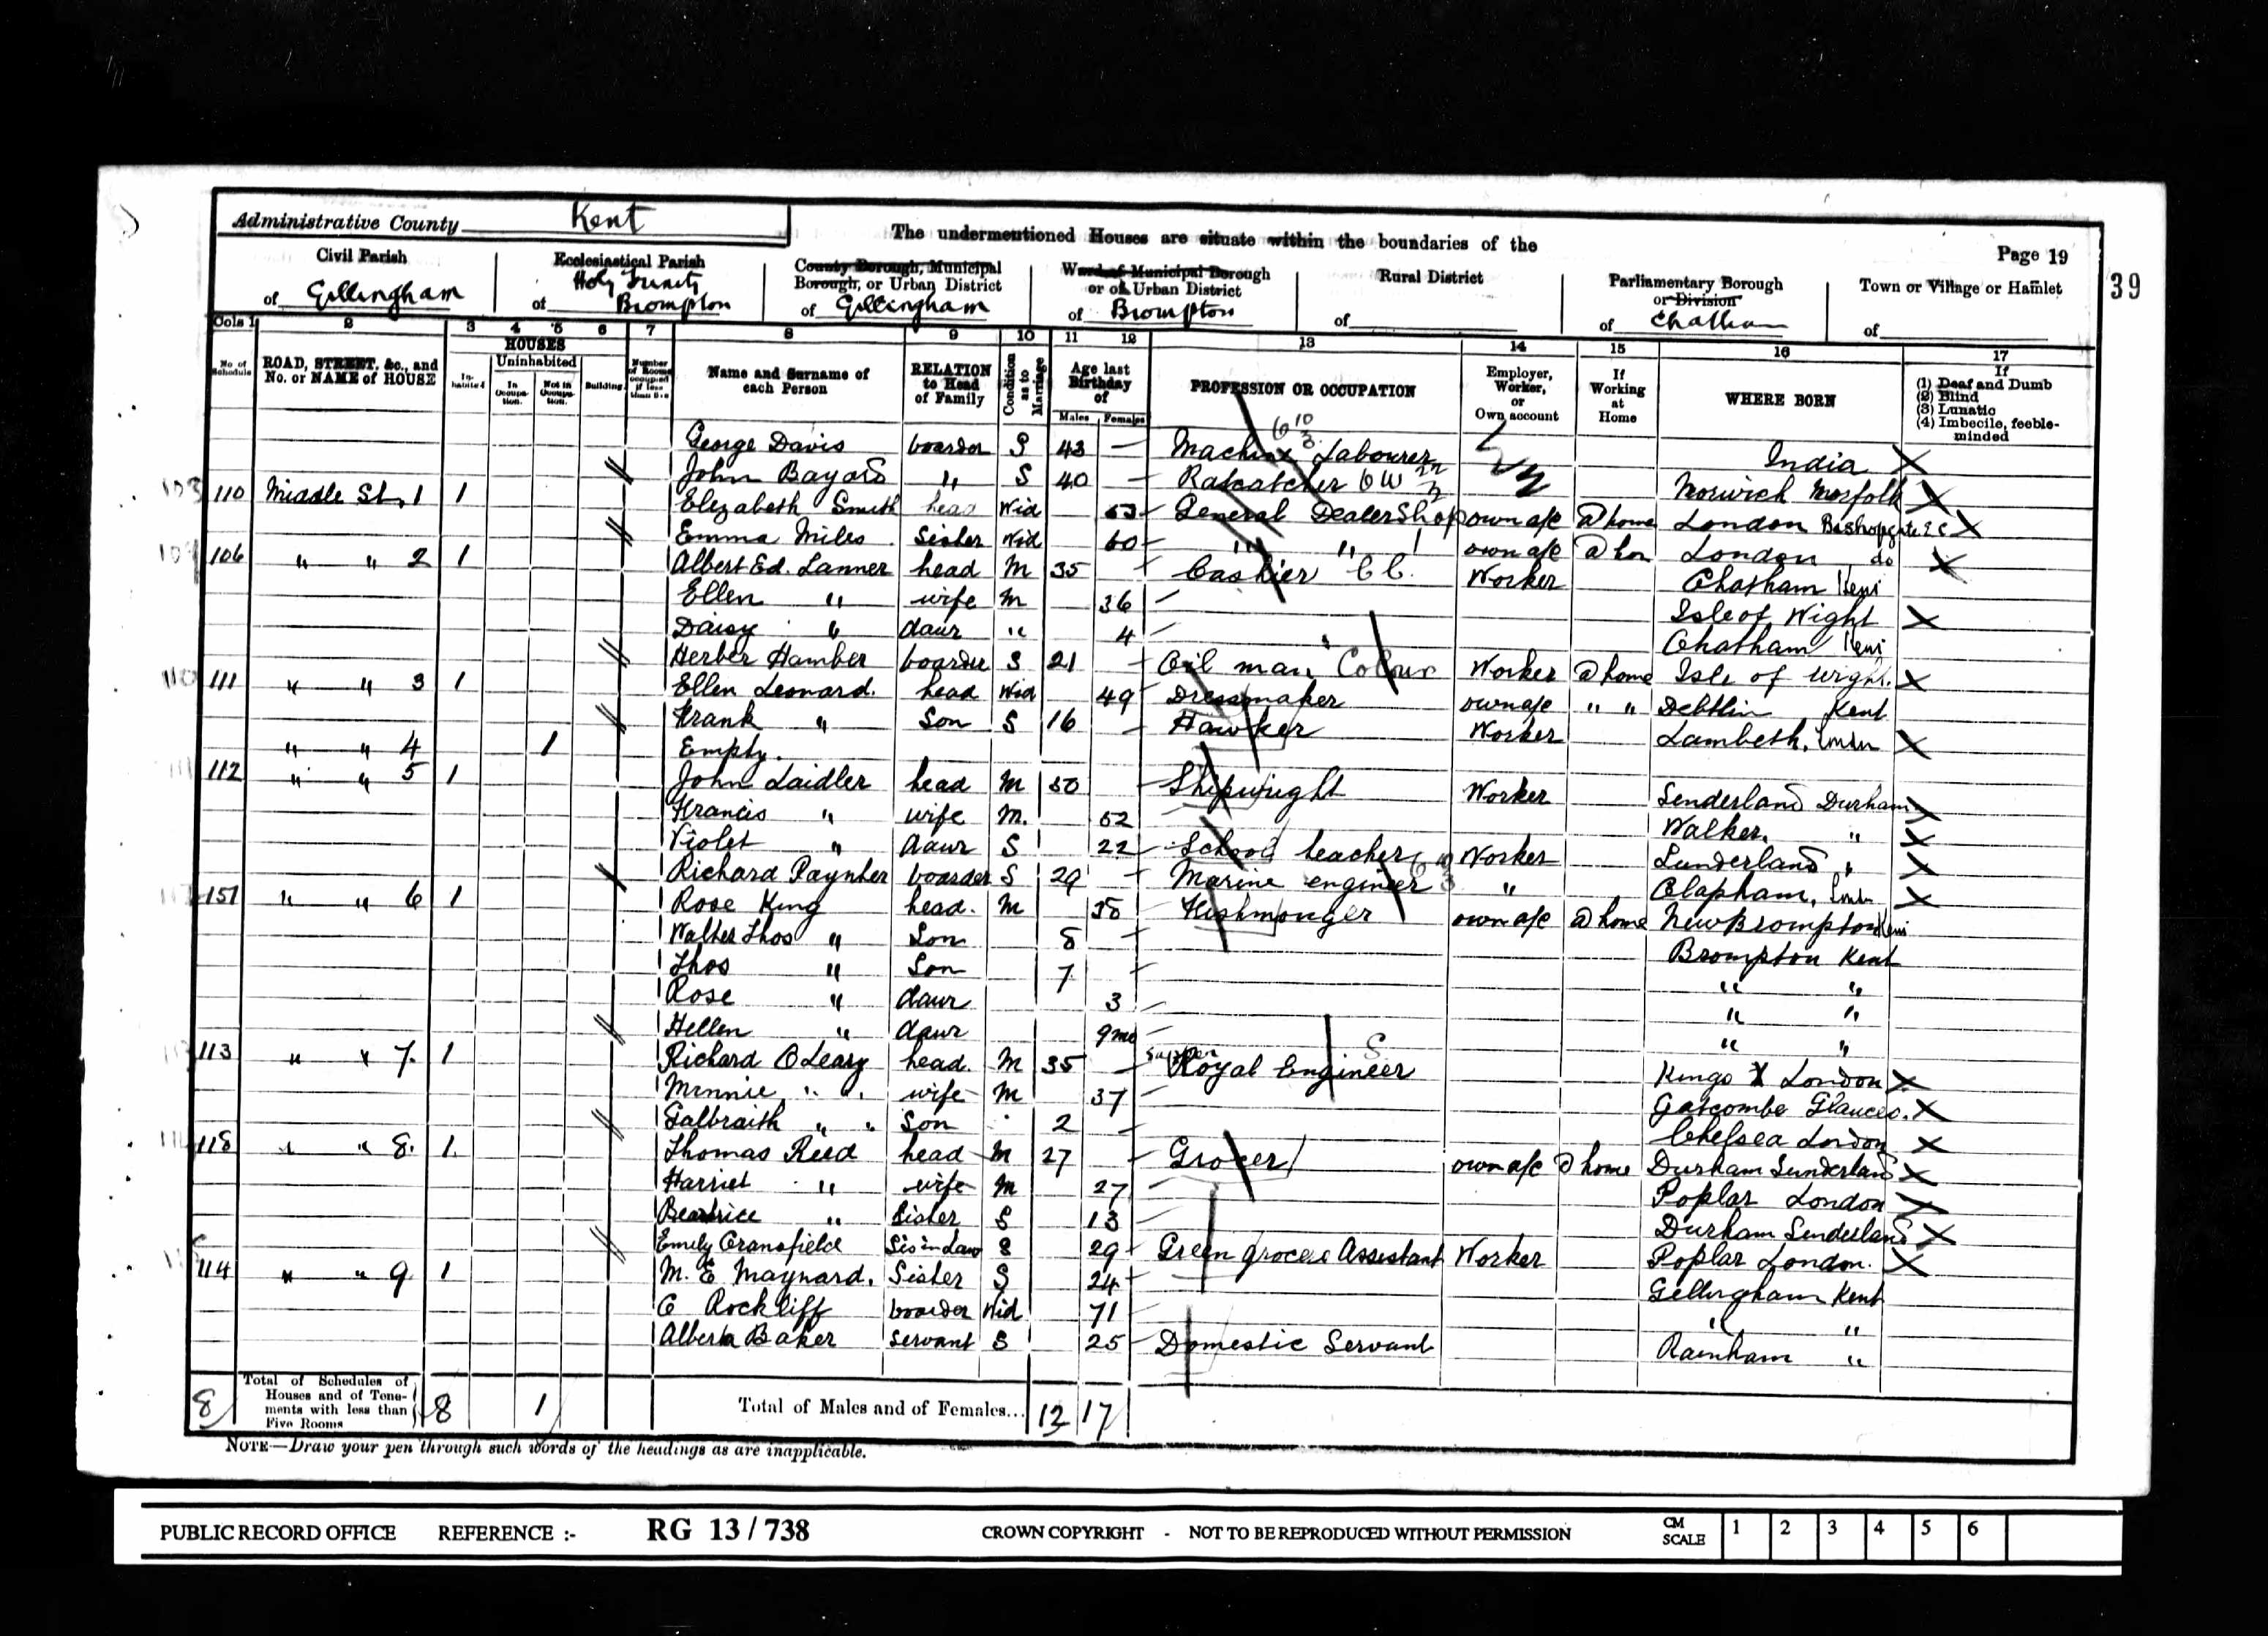 Administrative County Kent
The undermentioned Houses are situate within the boundaries of the
Page 19
39
Civil Parish of Gillingham
Ecclesiastical Parish of Holy Trinity Brompton
County Borough, Municipal Borough, or Urban District of Gillingham
Ward of Municipal Borough or of Urban District of Brompton
Rural District of
Parliamentary Borough or Division of Chatham
Town or Village or Hamlet of
Cols 1 2 3 4 5 6 7 8 9 10 11 12 13 14 15 16 17
No. of Schedule
ROAD, STREET, &c., and No. or NAME of HOUSE
HOUSES
Inhabited
Uninhabited
In Occupation.
Not in Occupation.
Building
Number of Rooms occupied if less than five
Name and Surname of each Person
RELATION to Head of Family
Condition as to Marriage
Age last Birthday of
Males Females
PROFESSION OR OCCUPATION
Employer, Worker, or Own account
If Working at Home
WHERE BORN
If
(1) Deaf and Dumb
(2) Blind
(3) Lunatic
(4) Imbecile, feeble-minded
George Davis boarder S 43 — Machine Labourer India
John Bayard " S 40 — Ratcatcher India Norwich Norfolk
110 Middle St, 1 1 Elizabeth Smith head Wid 53 General Dealer Shop own a/c @ home London Bishopgate E C
Emma Miles Sister Wid 60 " " own a/c @ hom London do
106 " " 2 1 Albert Ed. Lanner head M 35 Cashier C C. Worker Chatham Kent
Ellen " wife M 36 Isle of Wight
Daisy " daur " 4 Chatham Kent
Herber Hamber boarder S 21 Oil man Colour Worker @ home Isle of Wight.
111 " " 3 1 Ellen Leonard. head Wid 49 Dressmaker own a/c " " Debtlin Kent
Frank " Son S 16 Hawker Worker Lambeth, London
" " 4 1 Empty.
112 " " 5 1 John Laidler head M 50 Shipwright Worker Senderland Durham
Francis " wife M. 52 Walker. "
Violet " daur S 22 School teacher Worker Sunderland "
Richard Paynter boarder S 29 Marine engineer " Clapham, London
151 " " 6 1 Rose King head. M 38 Fishmonger own a/c @ home New Brompton Kent
Walter Thos " Son 8 Brompton Kent
Thos " Son 7 " "
Rose " daur 3 " "
Hellen " daur 9 mo " "
113 " " 7. 1 Richard O Leary head. M 35 Sapper Royal Engineer Kings X London
Minnie " wife M 37 Gatcombe Glauces.
Galbraith " " Son 2 Chelsea London
118 " " 8. 1 Thomas Reed head M 27 Grocer own a/c @ home Durham Sunderland
Harriet " wife M 27 Poplar London
Beatrice " Sister S 13 Durham Senderland
Emily Cransfield Sis in Law S 29 Green grocers Assistant Worker Poplar London.
114 " " 9 1 M. E Maynard. Sister S 24 Gillingham Kent
C Rockliff boarder Wid 71 " "
Alberta Baker servant S 25 Domestic Servant Rainham "
8 Total of Schedules of Houses and of Tenements with less than Five Rooms 8 1 Total of Males and of Females... 12 17
NOTE—Draw your pen through such words of the headings as are inapplicable.
PUBLIC RECORD OFFICE REFERENCE :- RG 13 / 738 CROWN COPYRIGHT - NOT TO BE REPRODUCED WITHOUT PERMISSION CM SCALE 1 2 3 4 5 6